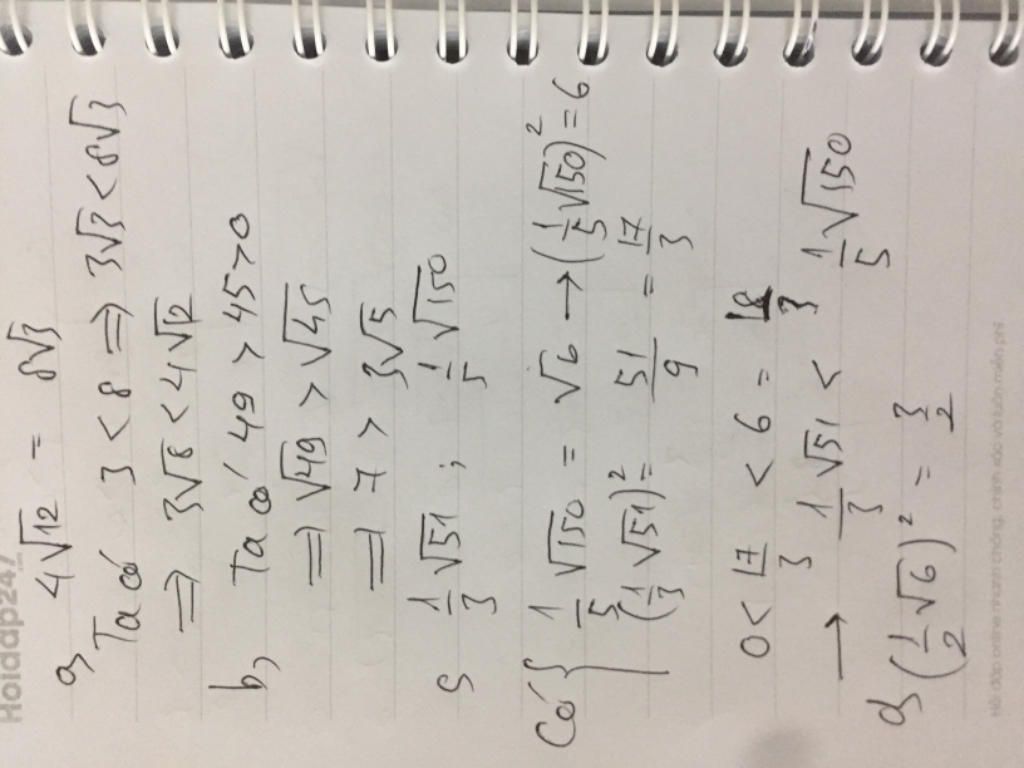 Hoidap247
.com
4√12 = 8√3
a, Ta có 3 < 8 ⇒ 3√3 < 8√3
⇒ 3√8 < 4√12
b, Ta có 49 > 45 > 0
⇒ √49 > √45
⇒ 7 > 3√5
c 1/3 √51 ; 1/5 √150
Có { 1/5 √150 = √6 → (1/5 √150)² = 6
(1/3 √51)² = 51/9 = 17/3
0 < 17/3 < 6 = 18/3
→ 1/3 √51 < 1/5 √150
d, (1/2 √6)² = 3/2
Hỏi đáp online nhanh chóng, chính xác và luôn miễn phí